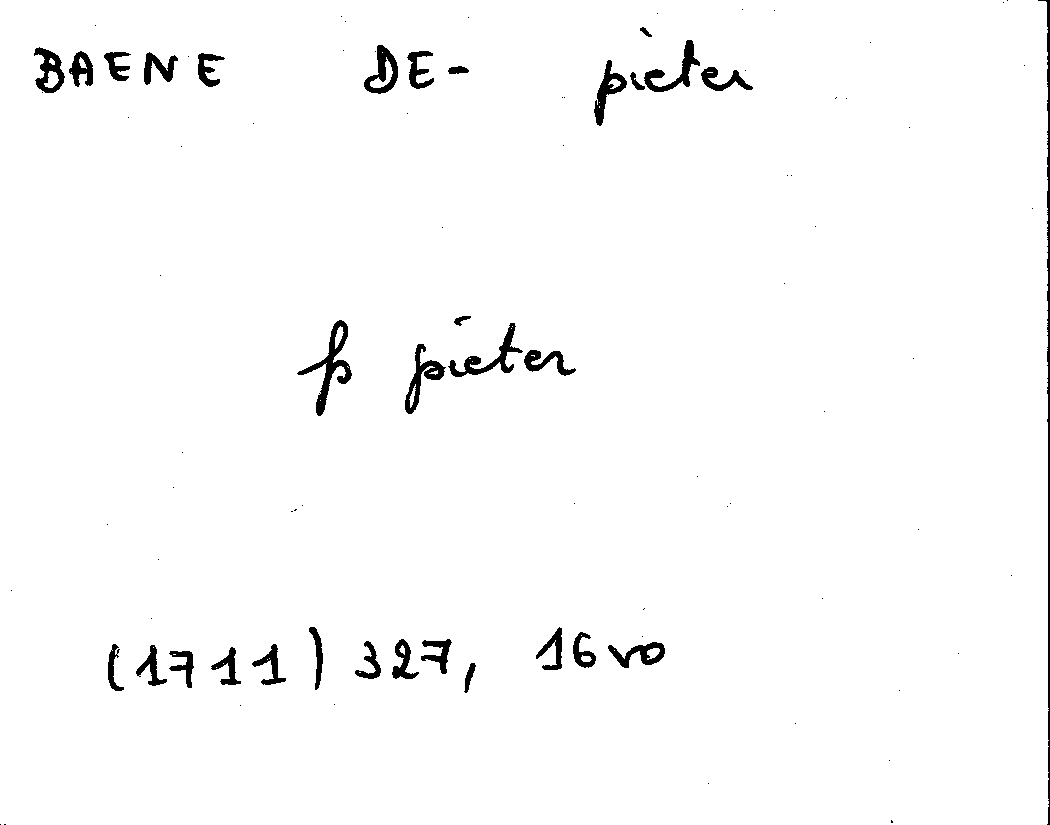 BAENE DE- pieter
fs pieter
(1711) 327, 16vo